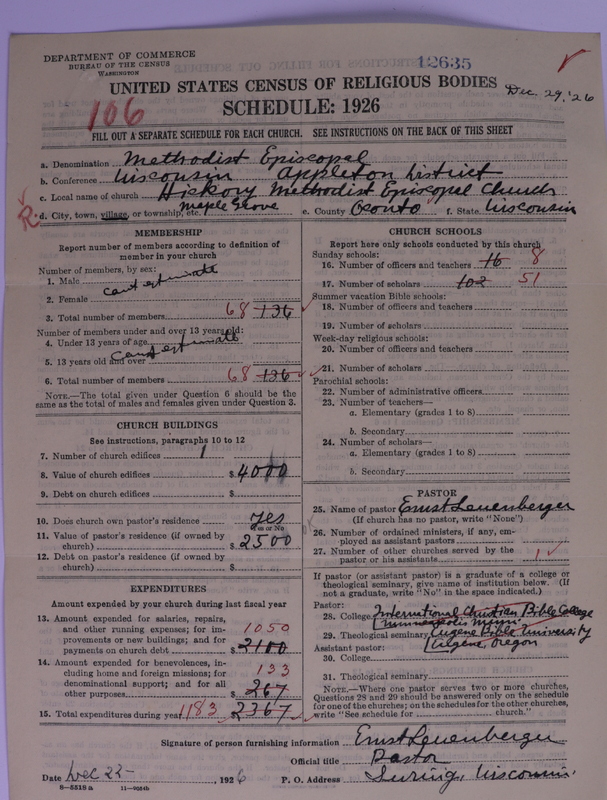 DEPARTMENT OF COMMERCE
BUREAU OF THE CENSUS
WASHINGTON
12635
UNITED STATES CENSUS OF RELIGIOUS BODIES
Dec. 29, '26
106
SCHEDULE: 1926
FILL OUT A SEPARATE SCHEDULE FOR EACH CHURCH. SEE INSTRUCTIONS ON THE BACK OF THIS SHEET
a. Denomination Methodist Episcopal
b. Conference Wisconsin Appleton District
c. Local name of church Hickory Methodist Episcopal Church
R. d. City, town, village, or township, etc. Maple Grove e. County Oconto f. State Wisconsin
MEMBERSHIP
Report number of members according to definition of member in your church
Number of members, by sex:
1. Male
cant estimate
2. Female
3. Total number of members 68 136
Number of members under and over 13 years old:
4. Under 13 years of age
cant estimate
5. 13 years old and over
6. Total number of members 68 136
NOTE.—The total given under Question 6 should be the same as the total of males and females given under Question 3.
CHURCH BUILDINGS
See instructions, paragraphs 10 to 12
7. Number of church edifices 1
8. Value of church edifices $ 4000
9. Debt on church edifices $
10. Does church own pastor's residence yes
Yes or No
11. Value of pastor's residence (if owned by church) $ 2500
12. Debt on pastor's residence (if owned by church) $
EXPENDITURES
Amount expended by your church during last fiscal year
13. Amount expended for salaries, repairs, and other running expenses; for improvements or new buildings; and for payments on church debt 1050 $ 2100
14. Amount expended for benevolences, including home and foreign missions; for denominational support; and for all other purposes 133 $ 267
15. Total expenditures during year 1183 2367
CHURCH SCHOOLS
Report here only schools conducted by this church
Sunday schools:
16. Number of officers and teachers 16 8
17. Number of scholars 102 51
Summer vacation Bible schools:
18. Number of officers and teachers
19. Number of scholars
Week-day religious schools:
20. Number of officers and teachers
21. Number of scholars
Parochial schools:
22. Number of administrative officers
23. Number of teachers—
a. Elementary (grades 1 to 8)
b. Secondary
24. Number of scholars—
a. Elementary (grades 1 to 8)
b. Secondary
PASTOR
25. Name of pastor Ernst Leuenberger
(If church has no pastor, write "None")
26. Number of ordained ministers, if any, employed as assistant pastors
27. Number of other churches served by the pastor or his assistants 1
If pastor (or assistant pastor) is a graduate of a college or theological seminary, give name of institution below. (If not a graduate, write "No" in the space indicated.)
Pastor:
28. College International Christian Bible College
Minneapolis Minn.
29. Theological seminary Eugene Bible University
Assistant pastor: Eugene, Oregon
30. College
31. Theological seminary
NOTE.—Where one pastor serves two or more churches, Questions 28 and 29 should be answered only on the schedule for one of the churches; on the schedules for the other churches, write "See schedule for church."
Signature of person furnishing information Ernst Leuenberger
Official title Pastor
Date Dec 22 , 1926 P. O. Address Suring, Wisconsin
8—5518 a 11—9024b